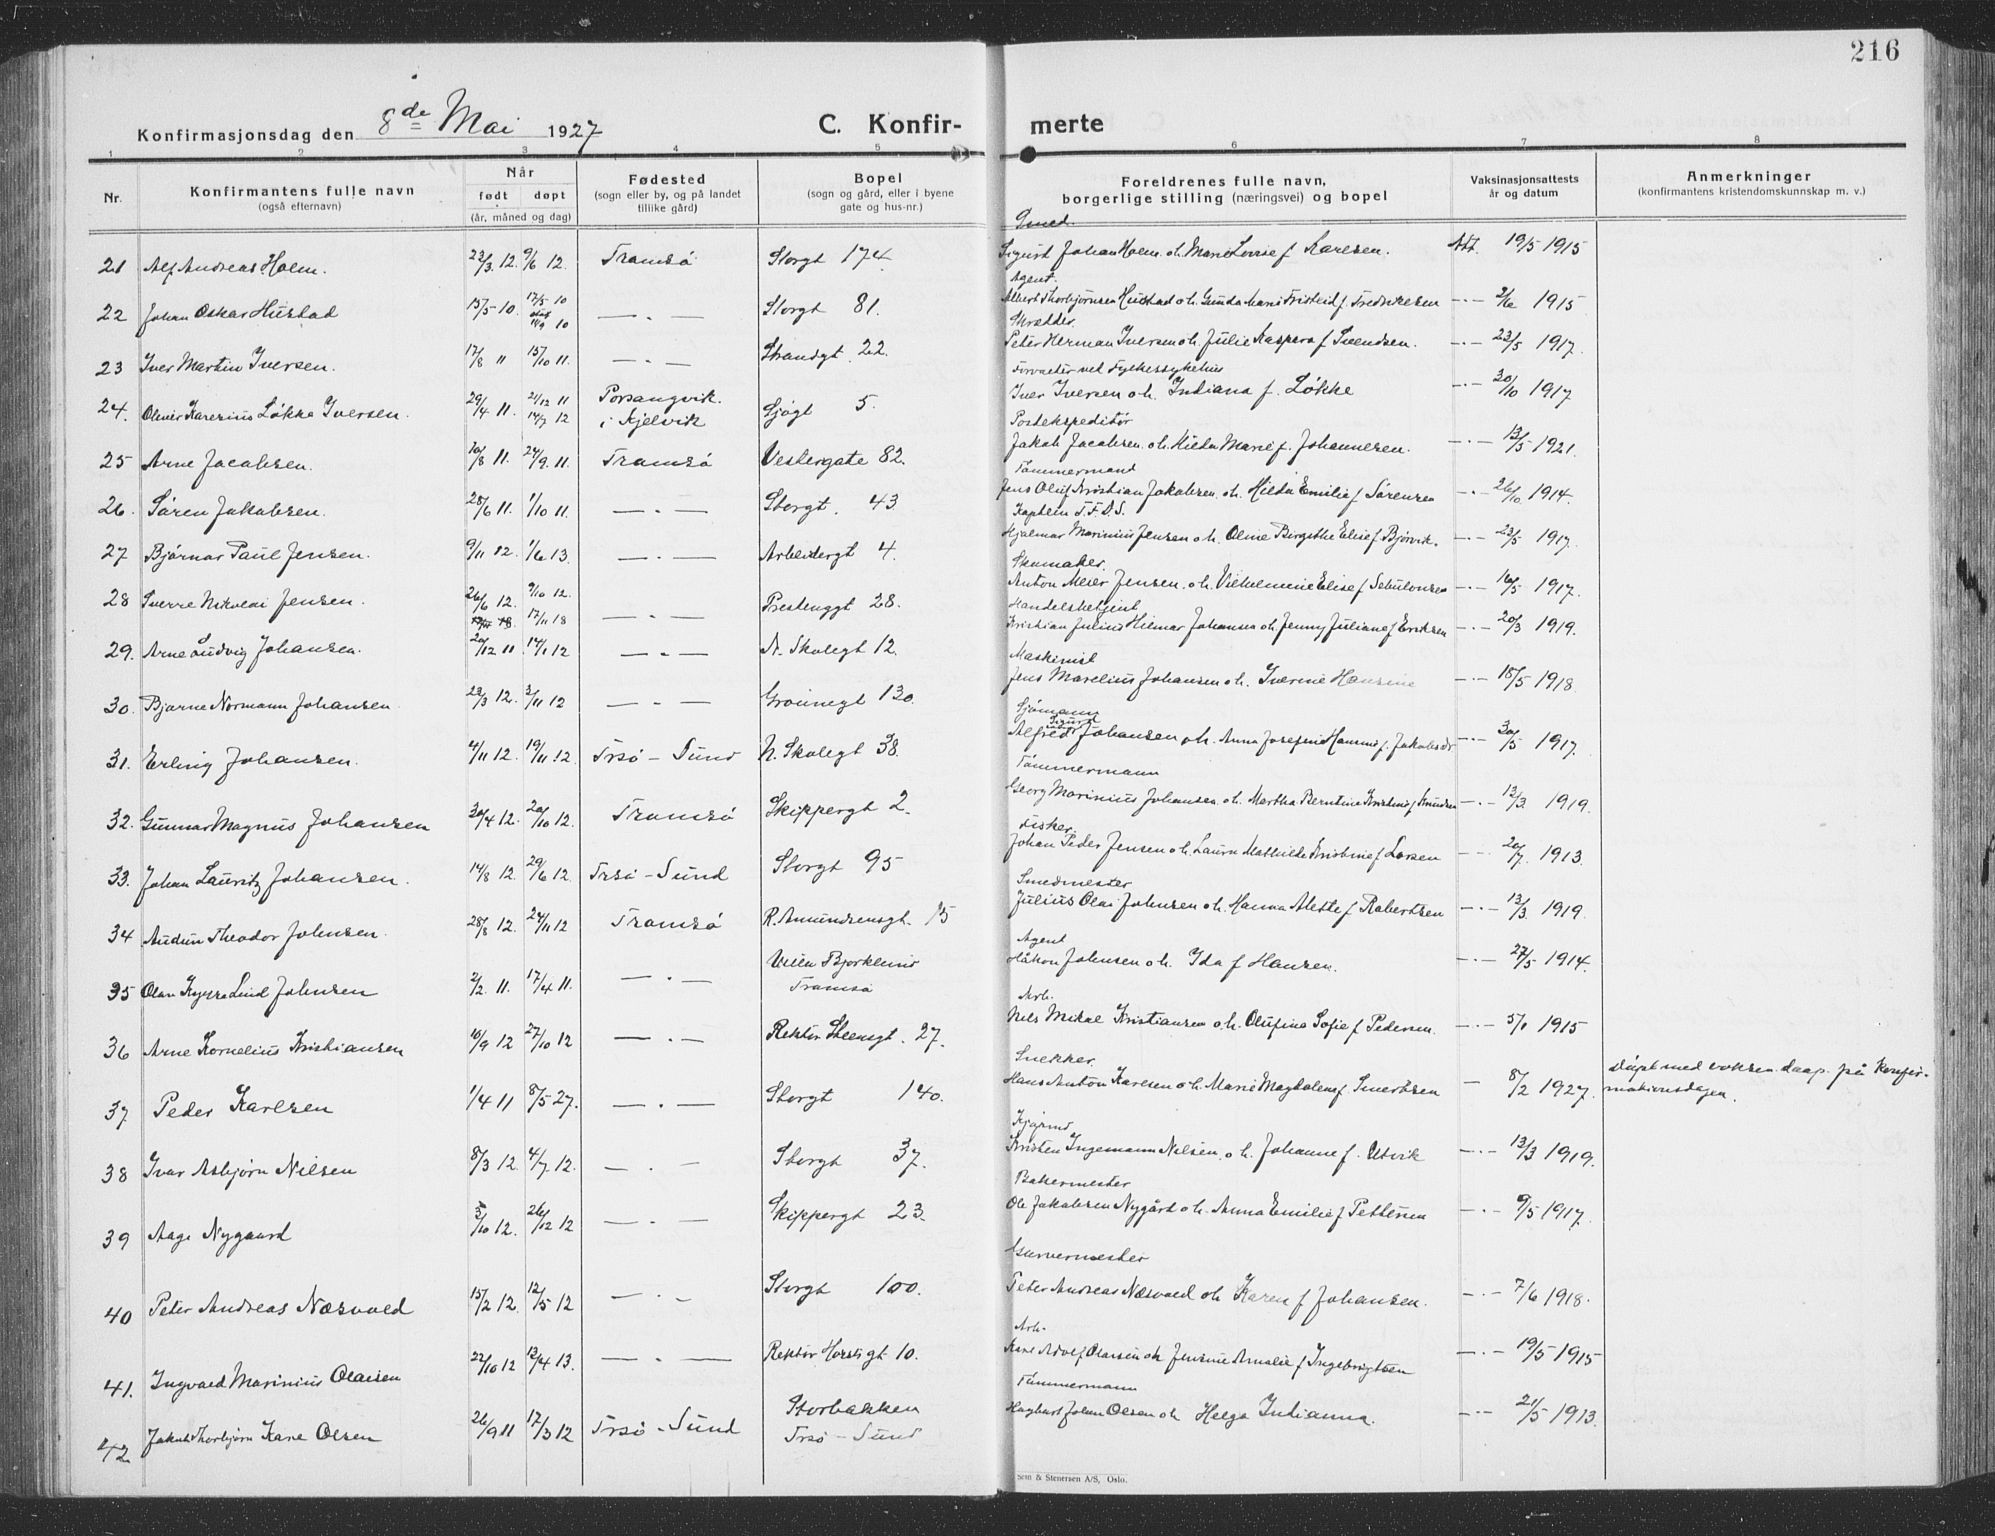 216
Konfirmasjonsdag den 8de Mai 1927
C. Konfir- merte
1 2 3 4 5 6 7 8
Nr. Konfirmantens fulle navn (også efternavn) Når født døpt (år, måned og dag) Fødested (sogn eller by, og på landet tillike gård) Bopel (sogn og gård, eller i byene gate og hus-nr.) Foreldrenes fulle navn, borgerlige stilling (næringsvei) og bopel Vaksinasjonsattests år og datum Anmerkninger (konfirmantens kristendomskunnskap m. v.)
Smed.
21 Alf Andreas Holm. 23/3 12. 9/6 12. Tromsø Storgt 174. Sigurd Johan Holm o.h. Marie Lovise f Karlsen. Att. 19/5 1915
Agent.
22 Johan Oskar Hustad 15/5-10. 17/5 10 11/9 10 — . — Storgt 81. Albert Thorbjørnsen Hustad o.h. Gunda Marie f. Fredriksen —.— 2/6 1915
Skrædder.
23 Iver Martin Iversen. 17/8 11 15/10 11. — . — Strandgt. 22. Peter Herman Iversen o.h. Julie Kaspera f Svendsen. —.— 23/5 1917.
Forvalter ved Fylkessykehus
24. Oliver Karenius Løkke Iversen. 29/4 11. 21/12 11 14/7 12 Porsangvik. i Kjelvik Sjøgt 5. Iver Iversen o.h. Indiana f. Løkke —.— 30/10 1917
Postekspeditør
25 Arne Jacobsen. 10/8 11. 24/9. 11. Tromsø Vestergate 82. Jakob Jacobsen. o.h. Hilda Marie f. Johannesen. —.— 13/5 1921.
Tømmermand
26. Søren Jakobsen. 28/6 11. 1/10 11. — . — Storgt. 43 Jens Oluf Kristian Jakobsen. o.h. Hilda Emilie f Sørensen —.— 26/10 1914.
Kaptein T.F.D.S.
27 Bjørnar Paul Jensen. 9/11 12. 1/6 13. — . — Arbeidergt 4. Hjalmar Marinius Jensen o.h. Oline Birgithe Elise f Bjørvik. —.— 23/5 1917.
Skomaker.
28 Sverre Nikolai Jensen. 26/6 12. 9/10 12. 17/11 18 — . — Prestenggt 28. Anton Meier Jensen. o.h. Vilhelmine Elise f Sebulonsen —.— 16/5 1917.
Handelsbetjent
29. Arne Ludvig Johansen. 20/12 11 14/1 12 — . — N. Skolegt 12. Kristian Julius Hilmar Johansen o.h. Jenny Juliane f Eriksen —.— 20/3 1919.
Maskinist
30. Bjarne Normann Johansen. 23/3 12. 3/11 12 — . — Grønnegt 130. Jens Marelius Johansen o.h. Iverine Hansine —.— 18/5 1918.
Sjømann
31. Erling Johansen. 4/11 12. 19/11 12. Trsø - Sund N. Skolegt 38 Alfred Sigurd Johansen o.h. Anna Josefine Hansine f. Jakobsdtr —.— 30/5 1917.
Tømmermann
32. Gunnar Magnus Johansen 30/4 12. 20/10 12. Tromsø Skippergt 2. Georg Marinius Johansen o.h. Martha Berntine Kristine f Knudsen —.— 13/3 1919.
Fisker.
33. Johan Lauritz Johansen. 14/8 12. 29/6 12. Trsø - Sund Storgt 95 Johan Peder Jensen o.h. Laura Mathilde Kristine f Larsen —.— 20/7. 1913.
Smedmester
34 Audun Theodor Johnsen. 28/8 12. 24/11 12 Tromsø R. Amundsensgt. 15 Julius Olai Johnsen o.h. Hanna Alette f Robertsen —.— 13/3 1919.
Agent
35 Olav Lind Johnsen 2/2. 11. 17/4 11. — . — Tromsø Håkon Johnsen o.h. Ida f Hansen. —.— 27/5 1914.
Arb.
36 Arne Kornelius Kristiansen 10/9 12 27/10 12 — . — Rektor Steensgt. 27. Nils Mikal Kristiansen o.h. Olufine Sofie f Pedersen. —.— 5/1 1915
Snekker.
37 Peder Karlsen 1/4 11 8/5 27. — . — Storgt 140. Hans Anton Karlsen o.h. Marie Magdalene f. Sivertsen — 8/2 1927. døpt med voksen daap. på konfirmationsdagen.
38 Ivar Asbjørn Nilsen 8/3 12. 4/7 12. — . — Storgt 37. Kristen Ingemann Nilsen. o.h. Johanne f. Utvik —.— 13/3 1919.
Bakermester
39 Aage Nygaard 5/10 12. 26/12 12 — . — Skippergt 23. Ole Jakobsen Nygård o.h. Anna Emilie f Pettersen —.— 9/5 1917.
Garvermester
40 Peter Andreas Næsvold 15/2 12. 12/5 12 — . — Storgt 100. Peter Andreas Næsvold o.h. Karen f Johansen. —.— 7/6 1918.
Arb.
41. Ingvald Marinius Olaisen 22/10 12 13/4 13. — . — Rektor Horstgt 10. Kare Adolf Olaisen o.h. Jensine Amalie f Ingebrigtsen —.— 19/5 1915
Tømmermann
42 Jakob Thorbjørn Kare Olsen 26/9 11 17/3 12 Trsø - Sund Storbakken Trsø - Sund Hagbart Johan Olsen o.h. Helga Indianna. —.— 21/5 1913.
Sem & Stenersen A/S, Oslo.